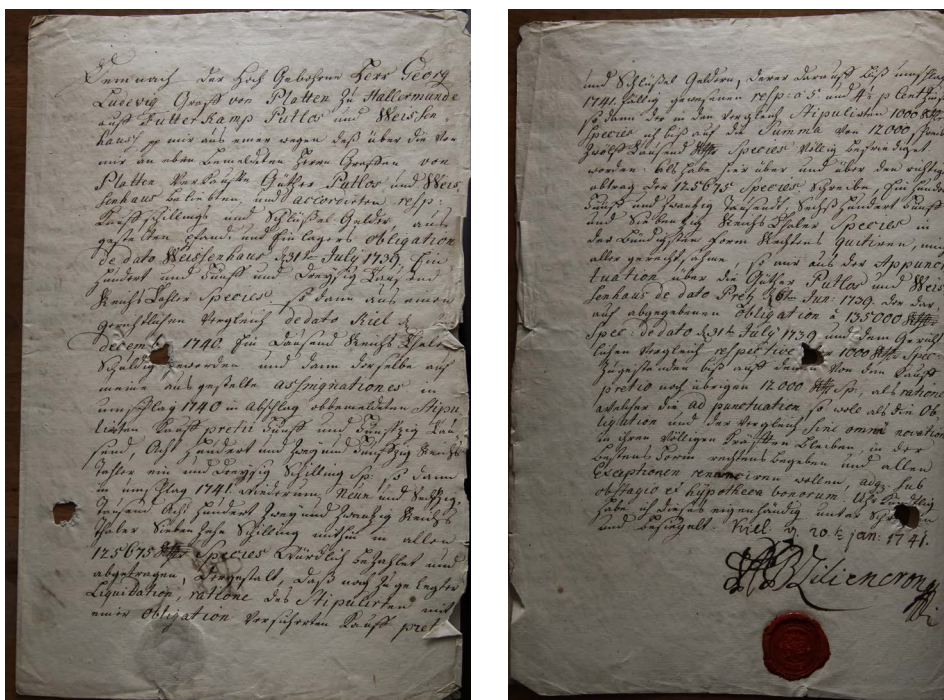 Demnach der Hoch Gebohrne Herr Georg
Ludewig Graff von Platten Zu Hallermunde
auff Futterkamp Putlos und Weissen
hauss pp mir aus einer wegen dess über die von
mir an oben bemeldten Herrn Graffen von
Platten Verkauffte Güther Putlos und Weis
senhaus beliebten, und accordirten resp:
Kauffschillings und Schlüssel Gelder aus
gestelten Pfand, und Einlagers Obligation
de dato Weissenhaus d 31t July 1739 Ein
Hundert und Funff und Dreyssig Tausend
Reichs Dahler Species so dann aus einem
gerichtlichen Vergleich de dato Kiel d
decemb 1740 Ein Dausend Reichs Dhaler
Schuldig worden und dann derselbe auff
meine ausgestelte assignationes in
umschlag 1740 in Abschlag obbemeldten Stipu
lirten Kauff pretii Funff und Funfftzig Tau
send, Acht Hundert und Zwey und Funfftzig Reichs
Dahler ein und Dreyssig Schilling Sp: so dann
in umschlag 1741 wiederum Neun und Sechzig
Tausend Acht Hundert Zwey und Zwantzig Reichs
Thaler Siebenzehn Schilling mithin in allen
125675 Species Würcklich bezahlet und
abgetragen, dergestalt, dass nach Zugelegter
Liquidation, ratione des Stipulirten mit
einer Obligation Versicherten Kauff pret
und Schlüssel Geldern, derer darauff biss umschlag
1741 fällig gewesenen resp: a 5 und 4½ p Cent
so dann der in den Vergleich Stipulirten 1000
Species ich biss auf die Summa von 12000,
Zwölff Tausend Species Völlig befriediget
worden. Als habe hier über und über den richtigen
abtrag der 125675 Species schreibe, Ein Hundert
Funff und Zwantzig Tausend, Sechs Hundert Funff
und Siebentzig Reichs Thaler Species in
der Bündigsten Form Rechtens quitiren, mir
aber gerecht ohne, so mir aus der Appunc
tuation über die Güther Putlos und Weis
senhaus de dato Pretz d 6t Jun: 1739. der dar
auf abgegebenen Obligation a 135000
Spec: de dato d 31t July 1739 und dem Gericht
lichen Vergleich respective 1000 Spec
Zugestanden biss auf den von den Kauff
pretio noch übrigen 12000 Sp: als ratione
welcher die ad punctuation so wole als die Ob
ligation und der Vergleich sine omni novation
in ihren Völligen Kräfften Bleiben, in der
besten Form rechtens begeben und allen
Exceptionen renunciren wollen, sub
obstagio et hypotheca bonorum. Uhrkundtlig
habe ich dieses eigenhändig unter Schrieben
und besiegelt. Kiel d 20 t jan: 1741.
Liliencron